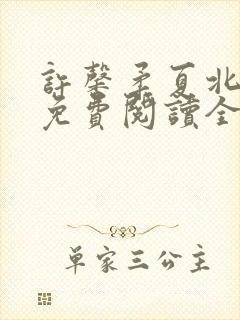 許馨矛夏北
免費閱讀全
單家三公主